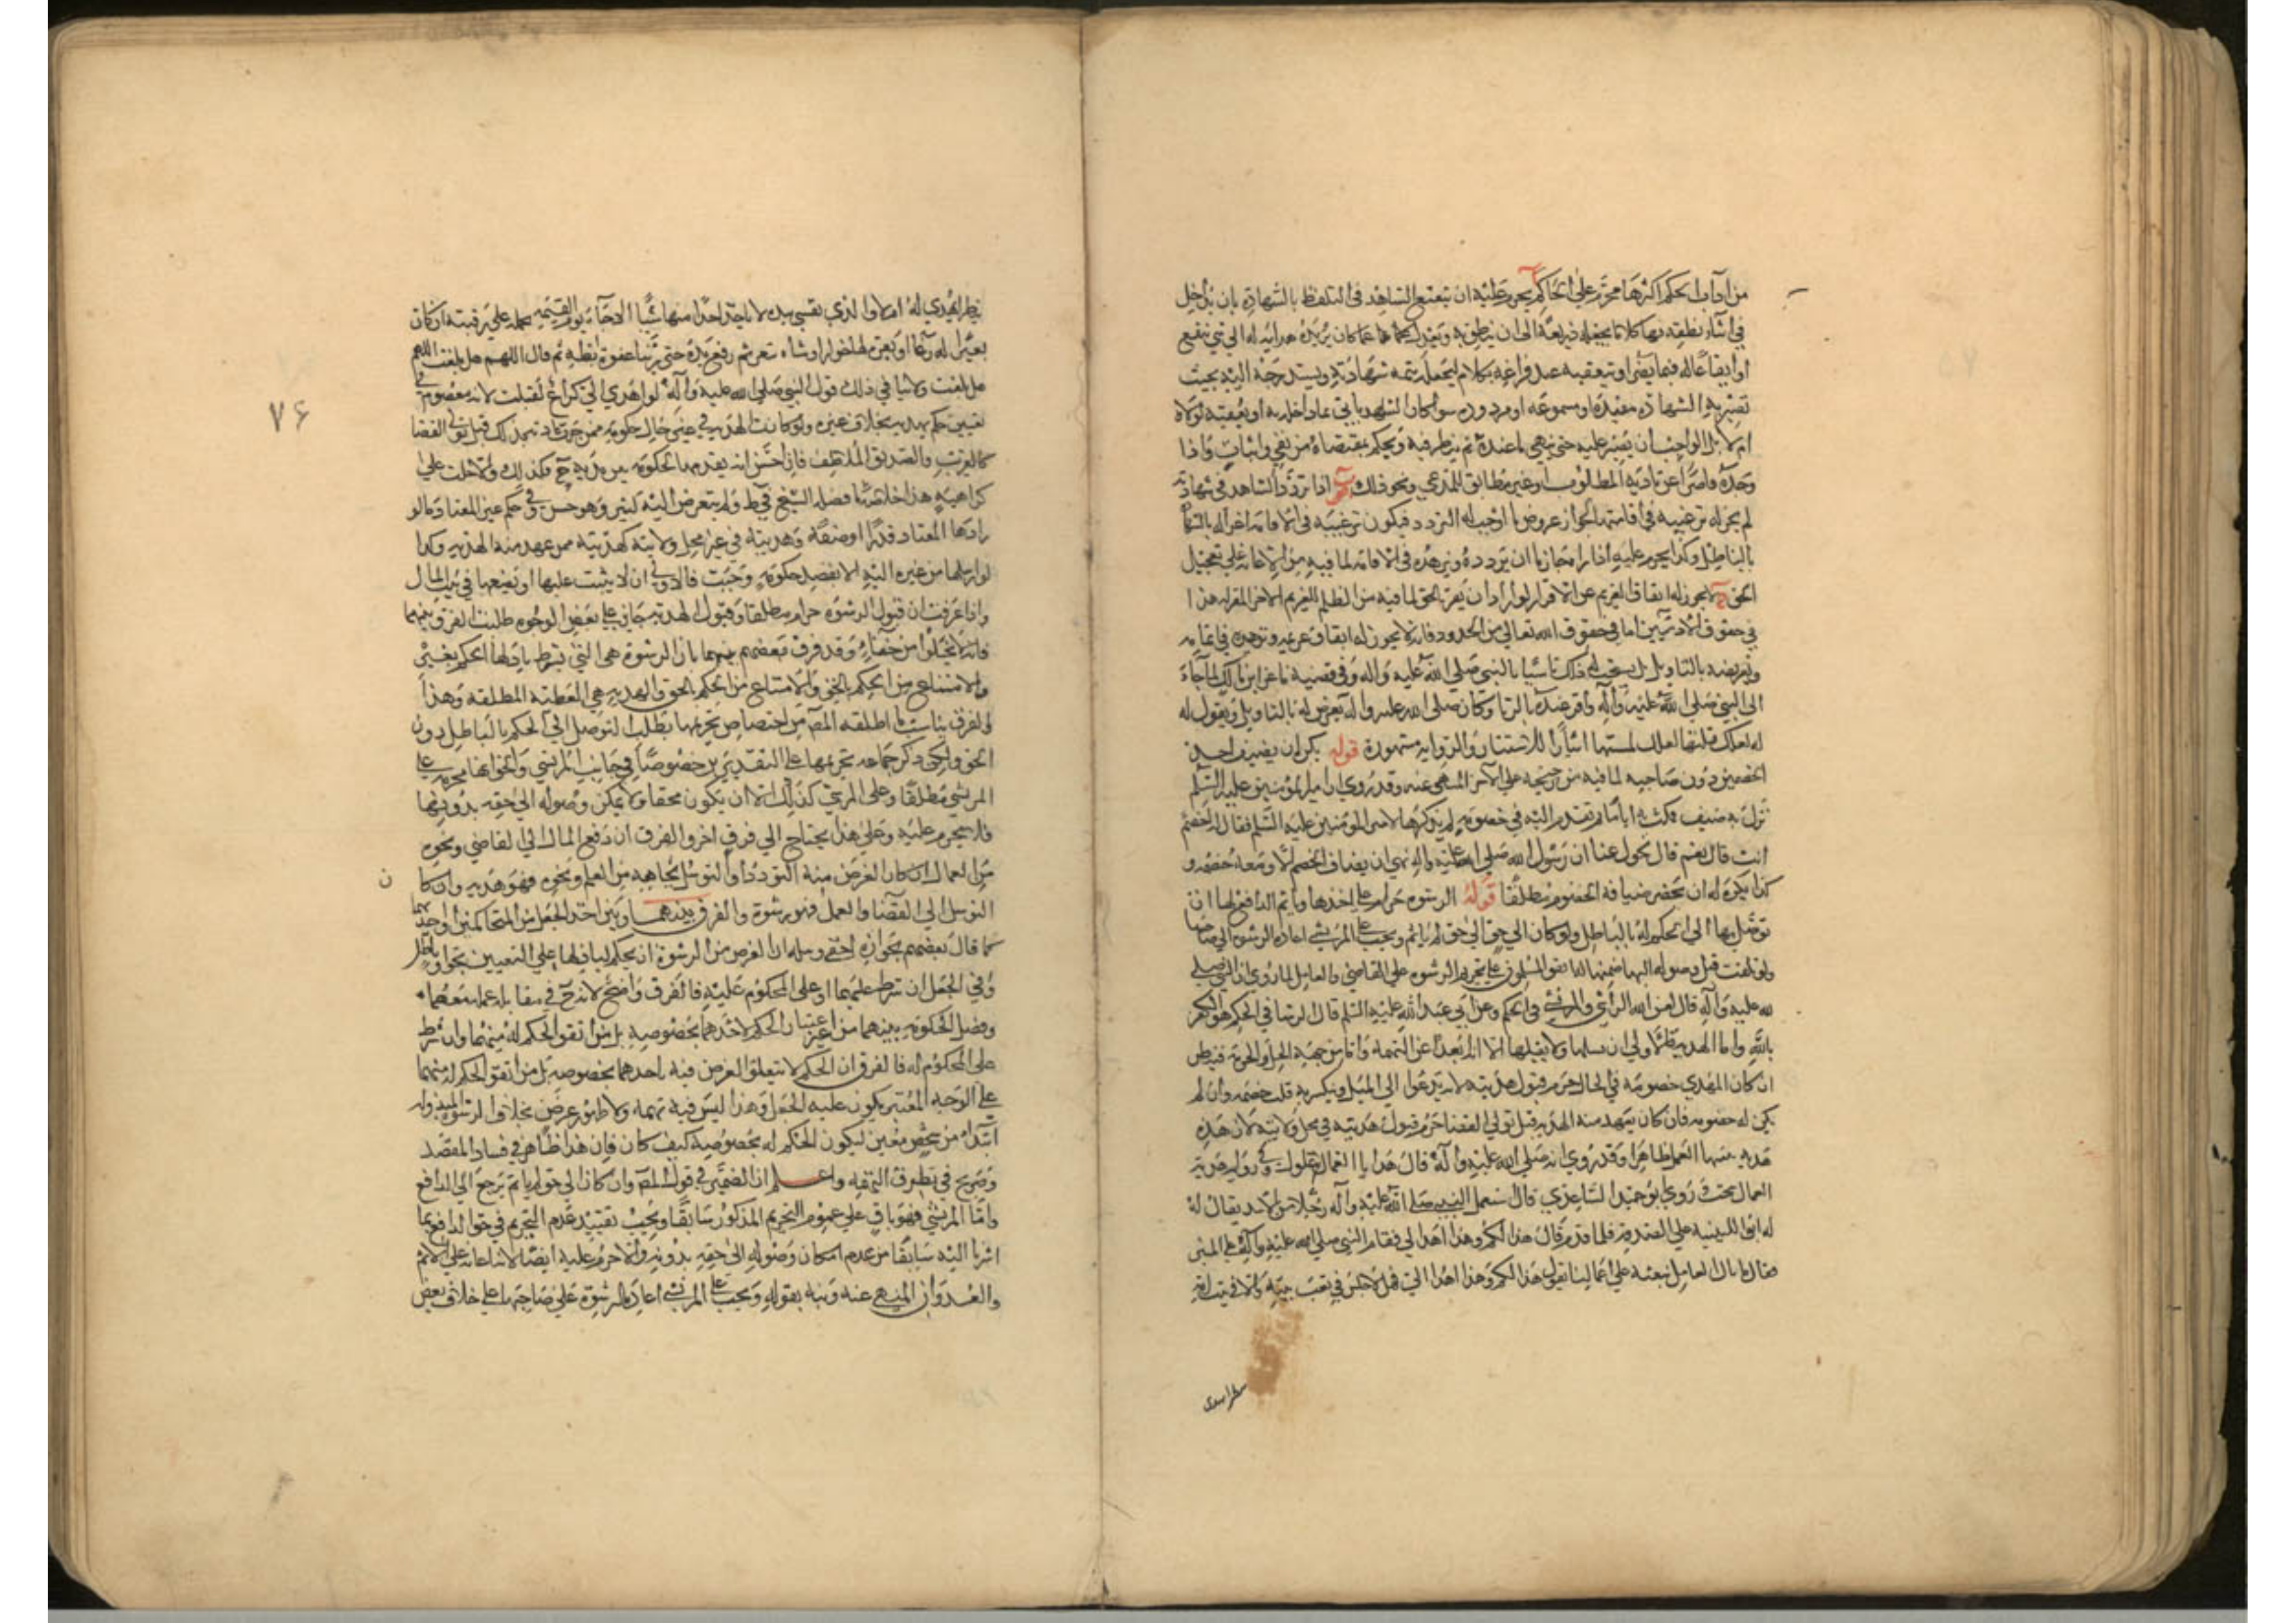 من آداب الحكم اكثرها محرم على الحاكم يحرم عليه ان يتعتع الشاهد في التلفظ بالشهادة بان يداخل
في اثناء نطقه بها كلاما يجعله ذريعة الى ان ينطق به ويعدل كما كان يريده هداية له الى شي ينفع
او ايقاعا له فيما يضر او يتعقبه عند فراغه بكلام ليجعله تتمه شهادته ويستدرجه اليه بحيث
تصير به الشهادة مفيدة او مسموعة او مردودة سوا كان الشاهد ياتي بما داخله به او يعقبه لولاه
ام لا بل الواجب ان يصبر عليه حتى ينهي ما عنده ثم ينظر فيه ويحكم بمقتضاه من نفي واثبات واذا
وجده قاصرا عن تادية المطلوب او غير مطابق للمدعي ونحو ذلك اذا تردد الشاهد في شهادته
لم يجز له ترغيبه في اقامتها لجواز عروض ما اوجب له التردد فيكون ترغيبه في الاقامة اغرا له
بالباطل وكذا يحرم عليه اذا راه جازما ان يردده ويزهده في الاقامة لما فيه من الاعانة على تعجيل
الحق لا يجوز له ايقاف الغريم عن الاقرار لو اراد ان يقر بالحق لما فيه من الظلم للغريم الاخر المقر له هذا
في حقوق الادميين اما في حقوق الله تعالى من الحدود فانه لا يجوز له ايقاف غريمه وتزهيده في اتمامه
وتعريضه بالتاويل بل يستحب له ذلك تاسيا بالنبي صلى الله عليه واله وفي قضية ماعز ابن مالك لما جاء
الى النبي صلى الله عليه وآله واقر عنده بالزنا وكان صلى الله عليه واله يعرض له بالتاويل ويقول له
له لعلك قبلتها لعلك لمستها ايثارا للاستتار والرواية مشهورة قوله يكره ان يضيف احد
الخصمين دون صاحبه لما فيه من ترجيحه على الآخر المنهى عنه وقد روي ان امير المؤمنين عليه السلم
نزل به ضيف فمكث به اياما ثم تقدم اليه في خصومه لم يذكرها لامير المؤمنين عليه السلم فقال له اخصم
انت قال نعم قال تحول عنا ان رسول الله صلى الله عليه واله نهى ان يضاف الخصم الا ومعه خصمه و
كذا يكره له ان يحضر ضيافة الخصوم مطلقا قوله الرشوه حرام على اخذها وياثم الدافع لها ان
توصل بها الى الحكم له بالباطل ولو كان الى حق لم ياثم ويجب على المرتشي اعادة الرشوه الى صاحبها
ولو تلفت قبل وصوله اليها ضمنها له اتفق المسلمون على تحريم الرشوه على القاضي والعامل لما روي ان النبي صلى
الله عليه وآله قال لعن الله الراشي والمرتشي في الحكم وعن ابي عبد الله عليه السلم قال الرشا في الحكم هو الكفر
بالله واما الهدية فالاولى ان يسلمها ولا يقبلها لانه ابعد عن التهمة واما من جهة الحل والحرمة فينظر
ان كان المهدي خصومة في الحال حرم قبول هديته لانه يدعوا الى الميل وينكسر به قلب خصمه وان لم
يكن له خصومه فان كان يتعهد منه الهديه قبل تولي القضا حرم قبول هديته في محل ولايته لان هذه
هدية سببها العمل ظاهرا وقد روي انه صلى الله عليه وآله قال هدايا العمال غلول وفي رواية هدية
العمال سحت وروي ابو حميد الساعدي قال استعمل النبي صلى الله عليه وآله رجلا من الاسد يقال له
له ابو اللتبيه على الصدقة فلما قدم قال هذا لكم وهذا اهدا لي فقام النبي صلى الله عليه وآله على المنبر
فقال ما بال العامل نبعثه على اعمالنا يقول هذا لكم وهذا اهدا الي فهلا جلس في بيت ابيه
ينظر ايهدي له ام لا والذي نفسي بيده لا ياخذ احدا منها شيا الا جاء يوم القيمه يحمله على رقبته ان كان
بعيرا له رغا او بقرة لها خوار او شاة تيعر ثم رفع يده حتى راينا عفرة ابطيه ثم قال اللهم هل بلغت اللهم
هل بلغت ولا ينافي ذلك قول النبي صلى الله عليه وآله لو اهدي الي كراع لقبلت لانه معصوم في
تغيير حكم بهديه بخلاف غيره ولو كانت الهديه في غير حال حكومة ممن جرت عادته بذلك قبل تولي القضا
كالقريب والصديق الملاطف فان احس انه يقدمها لحكومة بين يديه فكذلك والا حلت على
كراهية هذا خلاصة ما فصله الشيخ في ط ولم يتعرض اليه كثير وهو حسن وفي حكم غير المعتاد ما لو
زادها المعتاد قدرا او صفة وهديته في غير محل ولايته كهديته ممن عهد منه الهديه وكذا
لو ارسلها من غيره اليه لا لفصل حكومة وحيث فالاولى ان لا يثبت عليها او يضعها في بيت المال
واذا عرفت ان قبول الرشوه حرام مطلقا وقبول الهديه جايز على بعض الوجوه طلبت الفرق بينهما
فانه لا يخلوا من خفاء وقد فرق بعضهم بينهما بان الرشوة هي التي يشترط باذلها الحكم بغير
والامتناع من الحكم بالحق والامتناع من الحكم بالحق والهديه هي العطية المطلقة وهذا
الفرق يناسب ما اطلقه المص من اختصاص تحريمها بطلب التوصل الى الحكم بالباطل دون
الحق ولكن ذكر جماعه تحريمها على التقديرين خصوصا في جانب المرتشي والحق انها محرمه على
المرتشي مطلقا وعلى المرتشي كذلك الا ان يكون محقا ولا يمكن وصوله الى حقه بدونها
فلا يحرم عليه وعلى هذا يحتاج الى فرق اخر والفرق ان دفع المال الى القاضي ونحوه
من العمال ان كان الغرض منه التودد او التوسل لحاجه من العلم ونحوه فهو هديه وان كان
التوسل الى القضا والعمل فهو رشوة والفرق بينهما وبين اخذ الجعل من المتحاكمين او احدهما
كما قال بعضهم بجوازه ان الغرض من الرشوة ان يحكم لباذلها على التعيين بحق او باطل
وفي الجعل ان شرط عليهما او على المحكوم عليه فالفرق واضح لانه في مقابلة عمله معهما
وفصل الحكومه بينهما من اعتبار الحكم لاحدهما بخصوصيه بل من اتفق الحكم له منهما وان شرط
على المحكوم له فالفرق ان الحكم لا يتعلق الغرض فيه باحدهما بخصوصه بل من اتفق الحكم له منهما
على الوجه المعتبر يكون عليه الجعل وهذا ليس فيه تهمه ولا ظهور غرض بخلاف الرشوة المبذوله
ابتداء من شخص معين ليكون الحكم له بخصوصيه كيف كان فان هذا ظاهر في فساد المقصد
وصريح في تطرق التهمه واعلم ان الضمير في قول المص وان كان الى حق لم ياثم يرجع الى الدافع
واما المرتشي فهو باق على عموم التحريم المذكور سابقا ويجب تقييد عدم التحريم في حق الدافع بما
اشرنا اليه سابقا من عدم امكان وصوله الى حقه بدونه والا حرم عليه ايضا لانه اعانه على الاثم
والعدوان المنهي عنه ونبه بقوله ويجب على المرتشي اعادة الرشوة على صاحبها على خلاف بعض
ن
٧۶